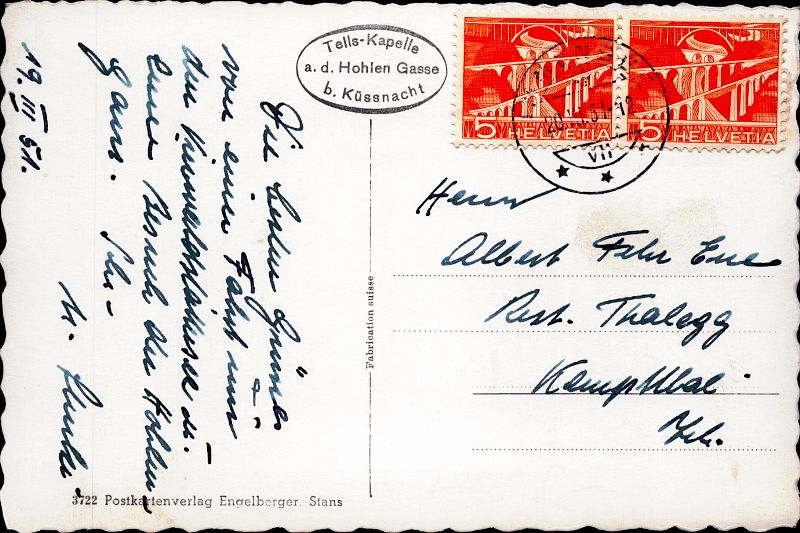 Tells-Kapelle
a. d. Hohlen Gasse
b. Küssnacht
5 HELVETIA
5 HELVETIA
VII
19. III 51.
Die besten Grüsse
von einer Fahrt um
den Vierwaldstättersee u.
einen Besuch der Hohlen
Gasse.
Ihr
Herrn
Albert Fehr
Rest. Thalegg
Kempttal
Zch.
Fabrication suisse
3722 Postkartenverlag Engelberger, Stans